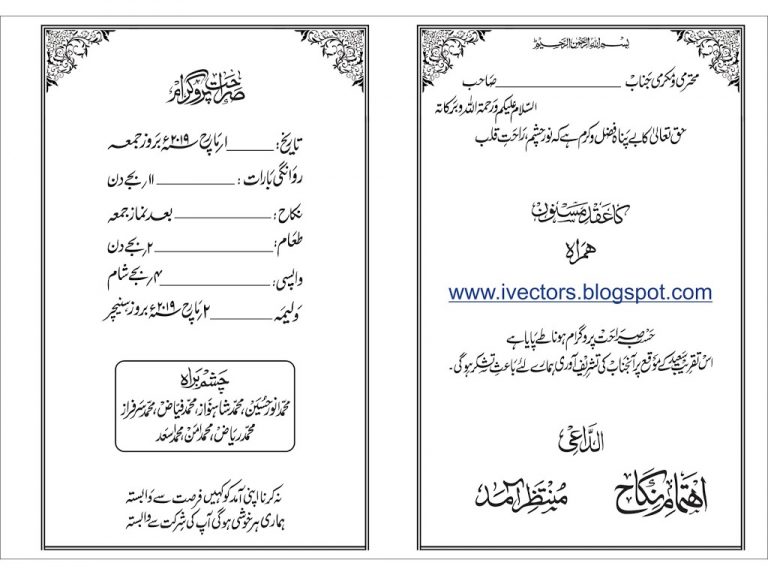 بسم اللہ الرحمن الرحیم
محترمی و مکرمی جناب ــــــــــــــ صاحب
السلام علیکم ورحمۃ اللہ وبرکاتہ
حق تعالیٰ کا بے پناہ فضل و کرم ہے کہ نور چشم، راحت قلب
کا عقد مسنون
ہمراہ
www.ivectors.blogspot.com
حسب صراحت پروگرام ہونا طے پایا ہے
اس تقریب سعید کے موقع پر آنجناب کی تشریف آوری ہمارے لئے باعث تشکر ہوگی۔
الداعی
اہتمام نکاح
منتظر آمد
صراحت پروگرام
تاریخ: ــــــــ ۱؍مارچ ۲۰۱۹ء بروز جمعہ
روانگی بارات: ــــــــ ۱۱؍بجے دن
نکاح: ــــــــ بعد نماز جمعہ
طعام: ــــــــ ۲؍بجے دن
واپسی: ــــــــ ۴؍بجے شام
ولیمہ ــــــــ ۲؍مارچ ۲۰۱۹ء بروز سنیچر
چشم براہ
محمد انور حسین، محمد شاہنواز، محمد فیاض، محمد سرفراز
محمد ریاض، محمد امن، محمد اسعد
نہ کرنا اپنی آمد کو کہیں فرصت سے وابستہ
ہماری ہر خوشی ہوگی آپ کی شرکت سے وابستہ